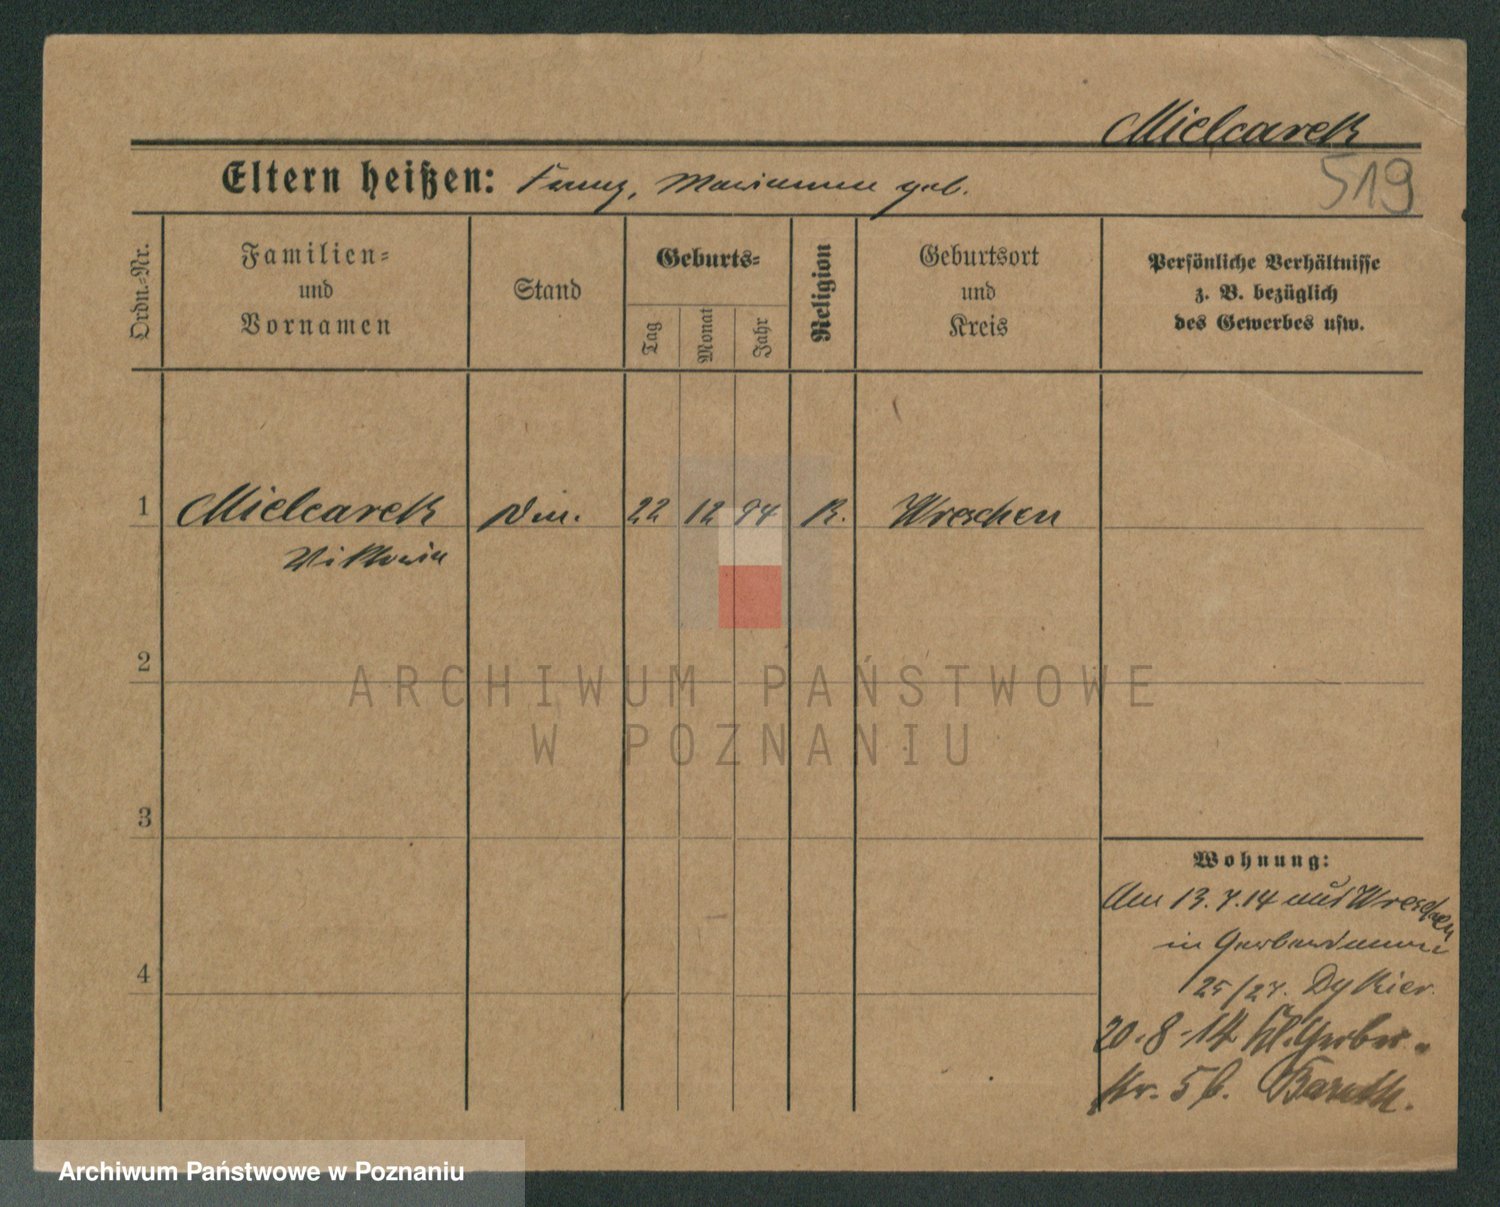 Mielcarek
519
Eltern heißen: Franz, Marianna geb.
Ordn.=Nr.
Familien=
und
Vornamen
Stand
Geburts=
Tag
Monat
Jahr
Religion
Geburtsort
und
Kreis
Persönliche Verhältnisse
z. B. bezüglich
des Gewerbes usw.
1 Mielcarek 22 12 94 K. Wreschen
Viktoria
2
3
4
ARCHIWUM PAŃSTWOWE
W POZNANIU
Wohnung:
Am 13.7.14 aus Wreschen
in Gerberdamm
25/27. Dykier.
20.8.14 Kl. Gerber=
str. 5 b. Baruth.
Archiwum Państwowe w Poznaniu